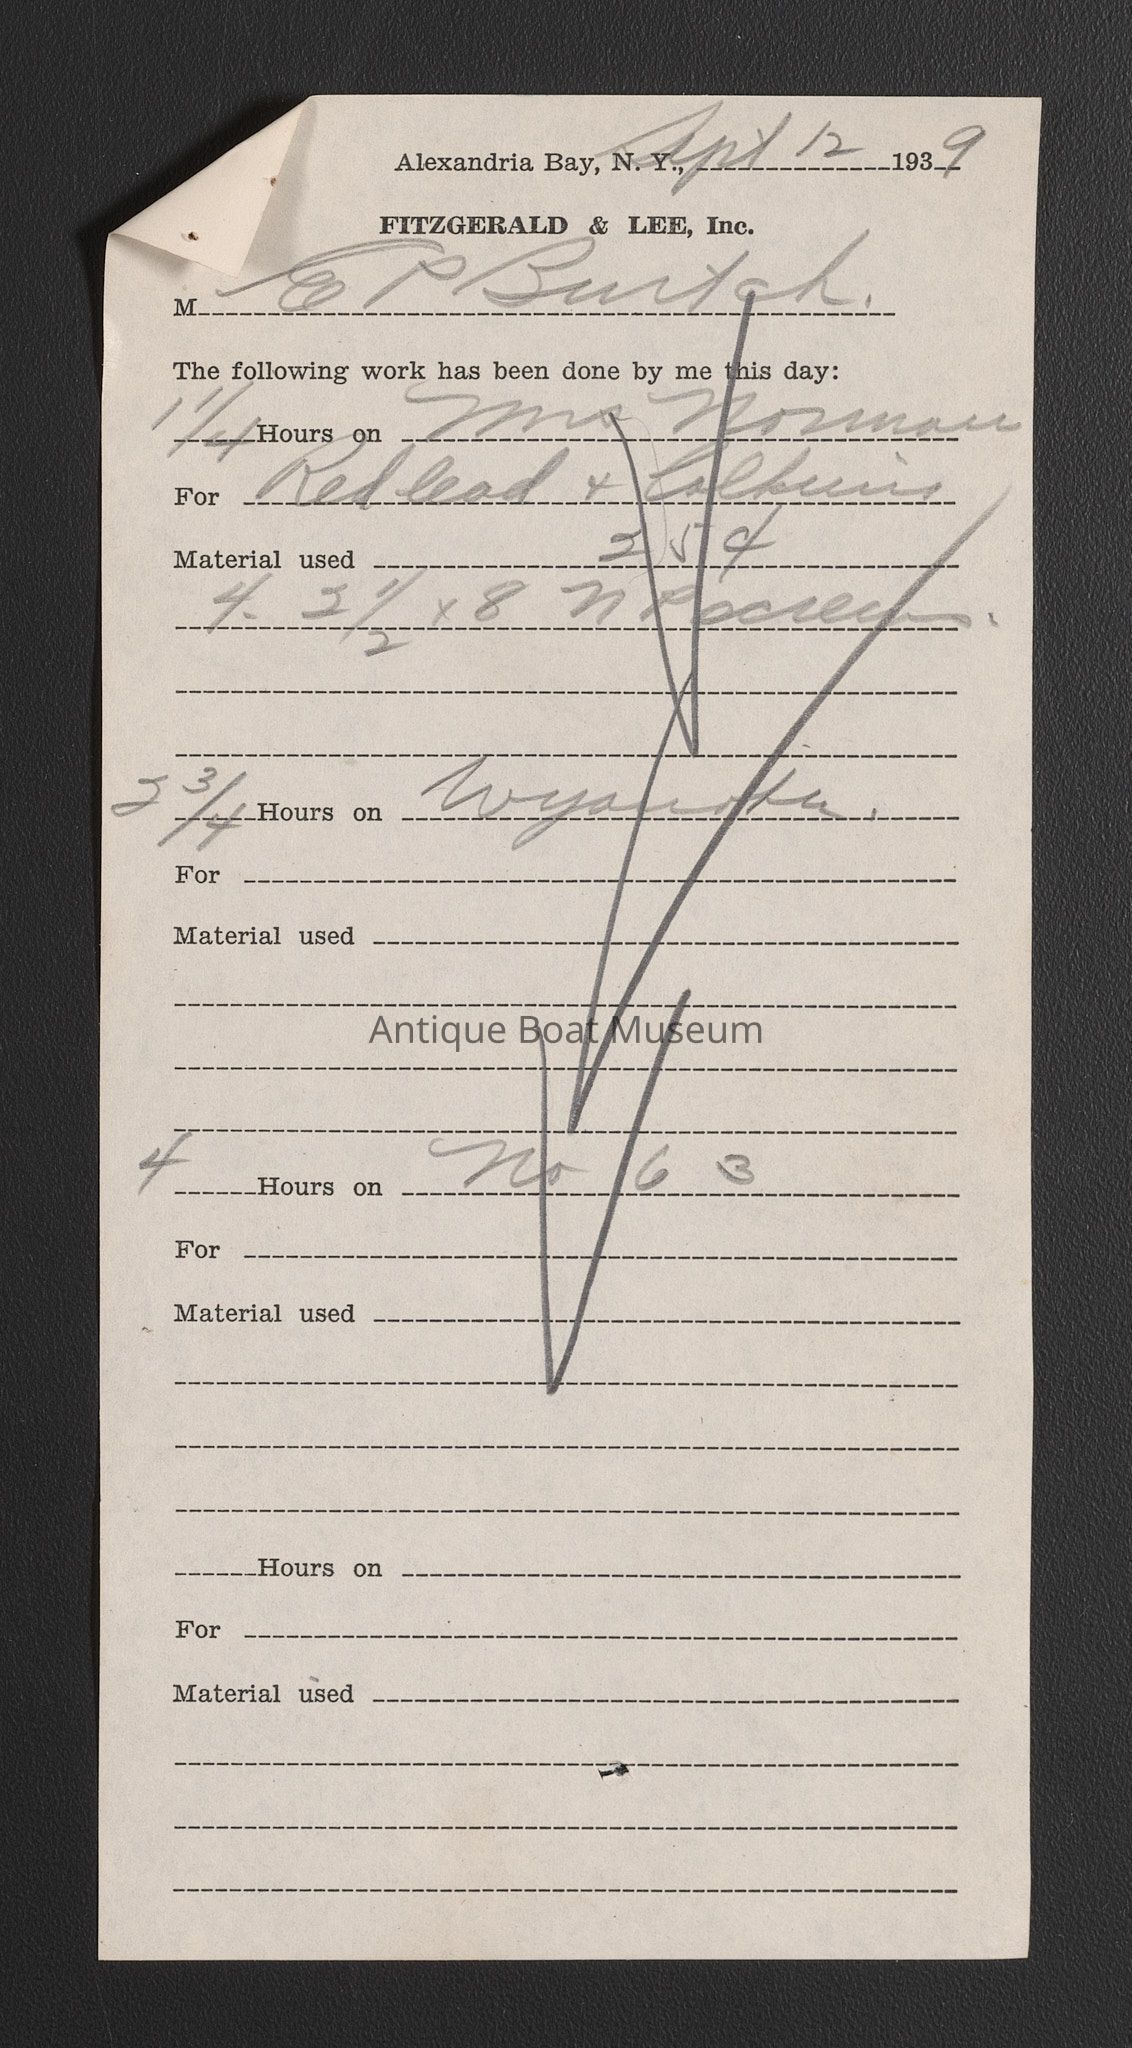 Alexandria Bay, N. Y., Sept 12 1939
FITZGERALD & LEE, Inc.
M E P Burtch.
The following work has been done by me this day:
1 1/4 Hours on Mrs Norman
For Red lead +
Material used 254
4. 2 1/2 x 8 N P screws.
2 3/4 Hours on
For
Material used
Antique Boat Museum
4 Hours on No 63
For
Material used
Hours on
For
Material used